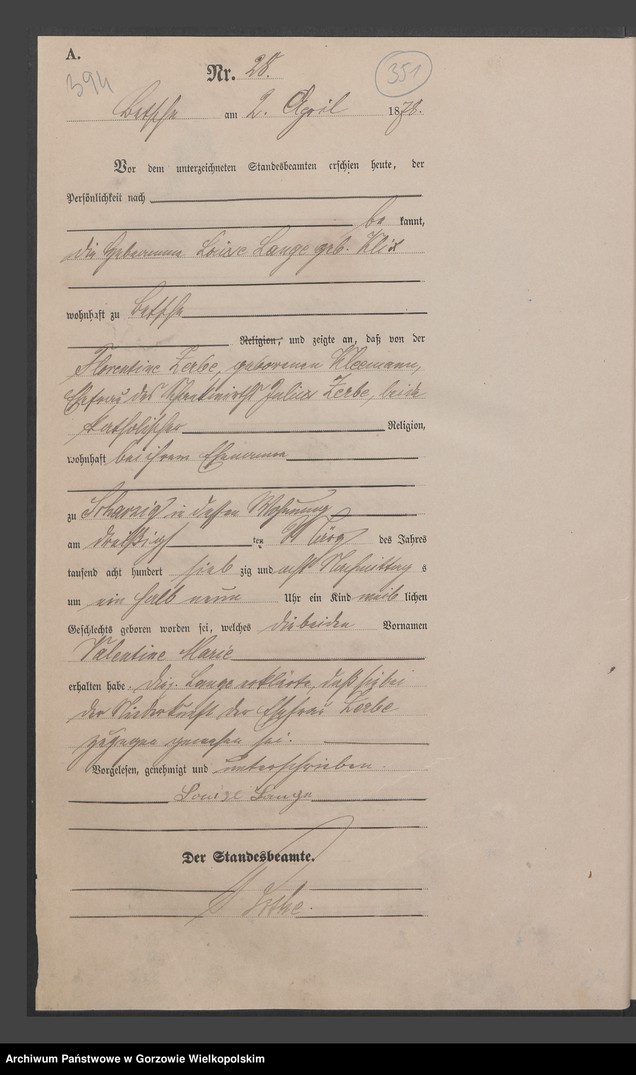 A.
394
Nr. 28.
351
Betsche am 2. April 1878.
Vor dem unterzeichneten Standesbeamten erschien heute, der
Persönlichkeit nach
be kannt,
die Hebamme Louise Lange geb. Klix
wohnhaft zu Betsche
Religion, und zeigte an, daß von der
Florentine Zerbe, geborenen Kleemann,
Ehefrau des Julius Zerbe, beide
katholischer Religion,
wohnhaft bei ihrem Ehemanne
zu in dessen Wohnung
am dreißigsten März des Jahres
tausend acht hundert siebzig und acht Nachmittags
um ein halb neun Uhr ein Kind weiblichen
Geschlechts geboren worden sei, welches die beiden Vornamen
Valentine Marie
erhalten habe. Die Lange erklärte, daß sie bei
der Niederkunft der Ehefrau Zerbe
zugegen gewesen sei.
Vorgelesen, genehmigt und unterschrieben.
Louise Lange
Der Standesbeamte.
Archiwum Państwowe w Gorzowie Wielkopolskim